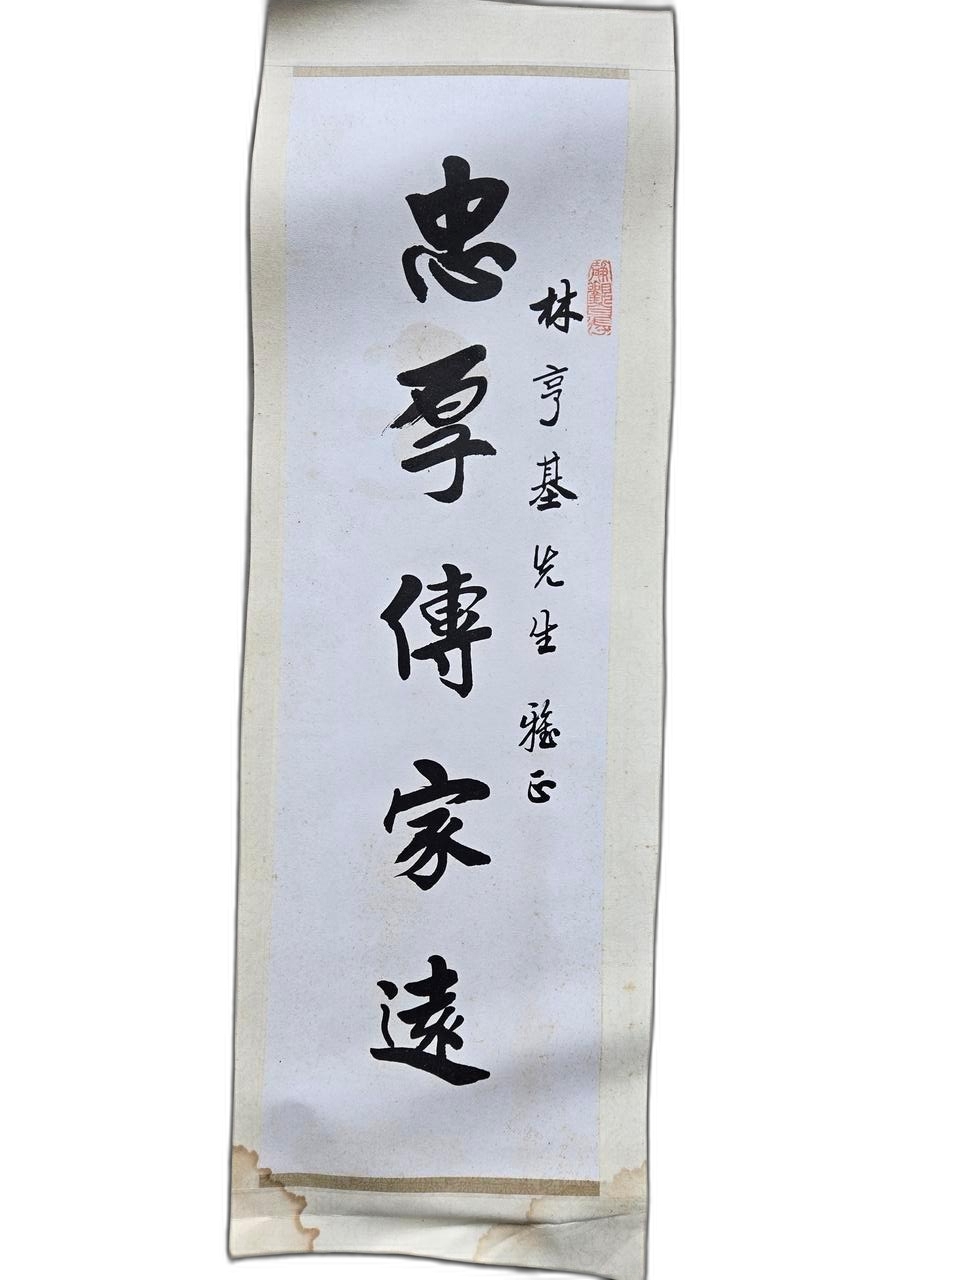 林亨基先生雅正
忠厚傳家遠